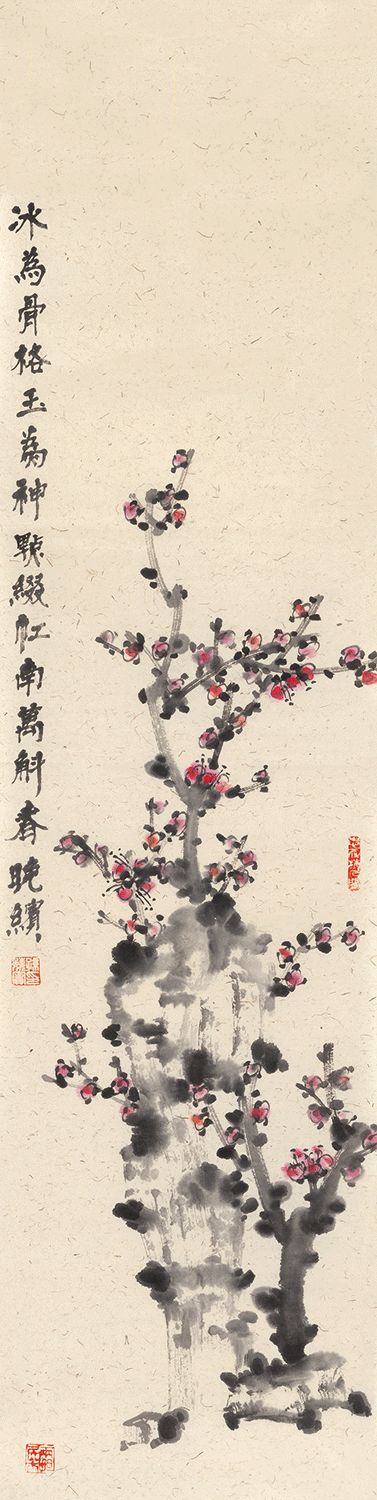 冰為骨格玉為神點綴江南萬斛春晚繽